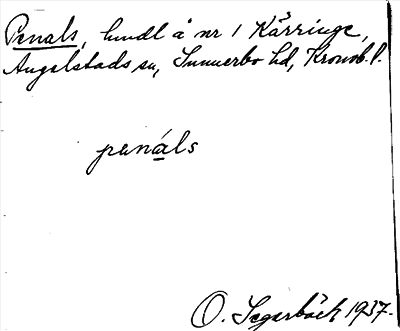 Penals, hmdl å nr 1 Kärringe,
Angelstads sn, Sunnerbo hd, Kronob. l.
penáls
O. Segerbäck 1937.